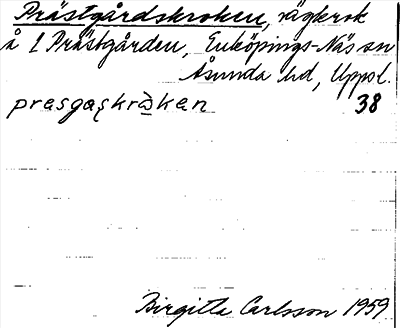 Prästgårdskroken, vägkrok
å 1 Prästgården, Enköpings-Näs sn
Åsunda hd, Uppl.
prasgaskråkan 38
Birgitta Carlsson 1959